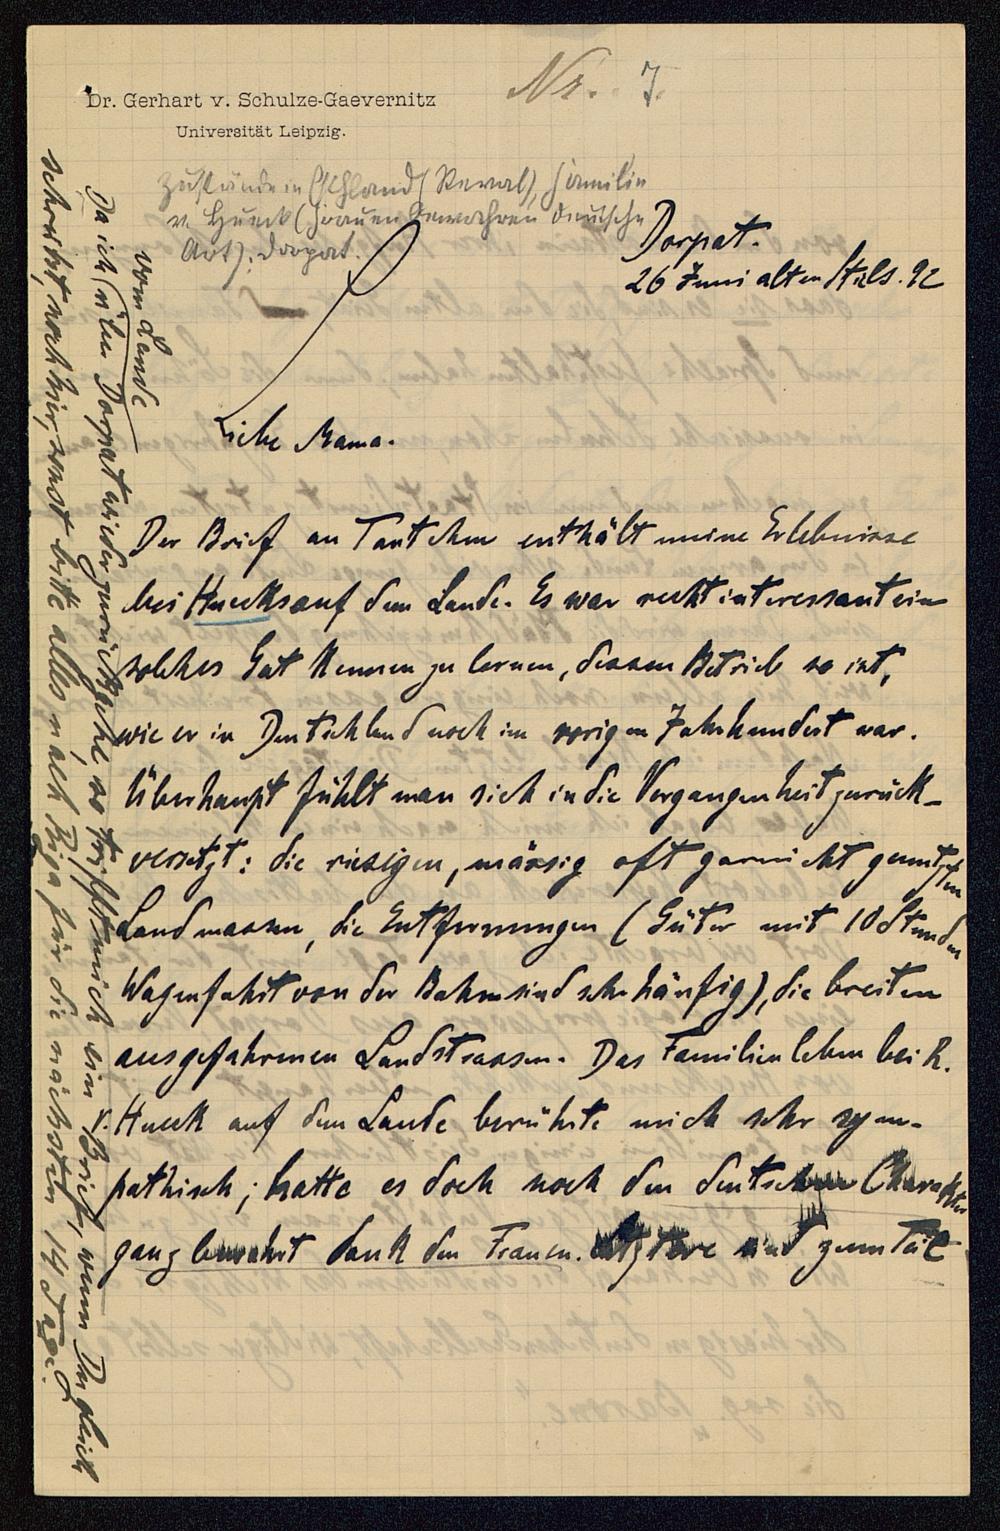 Nr. 7.
Dr. Gerhart v. Schulze-Gaevernitz
Universität Leipzig.
Zustände in Esthland (Reval), Familie
v. Hueck (Frauen bewahren deutsche
Art); Dorpat.
Dorpat.
26 Juni alten Stils. 92
Liebe Mama.
Der Brief an Tantchen enthält meine Erlebnisse
bei Huecks auf dem Lande. Es war recht interessant ein
solches Gut kennen zu lernen, dessen Betrieb so ist,
wie er in Deutschland noch im vorigen Jahrhundert war.
Überhaupt fühlt man sich in die Vergangenheit zurück-
versetzt: die riesigen, mässig oft garnicht genutzten
Landmassen, die Entfernungen (Güter mit 10 Stunden
Wagenfahrt von der Bahn sind sehr häufig), die breiten
ausgefahrenen Landstrassen. Das Familienleben bei R.
v. Hueck auf dem Lande berührte mich sehr sym-
pathisch; hatte es doch noch den deutschen Charakter
ganz bewahrt dank den Frauen. Letztere sind zum Teil
vom Lande
Da ich über Dorpat wieder zurückgehe so trifft mich ein Brief, wenn Du gleich
schreibst, noch hier, sonst bitte alles nach Riga für die nächsten 14 Tage.